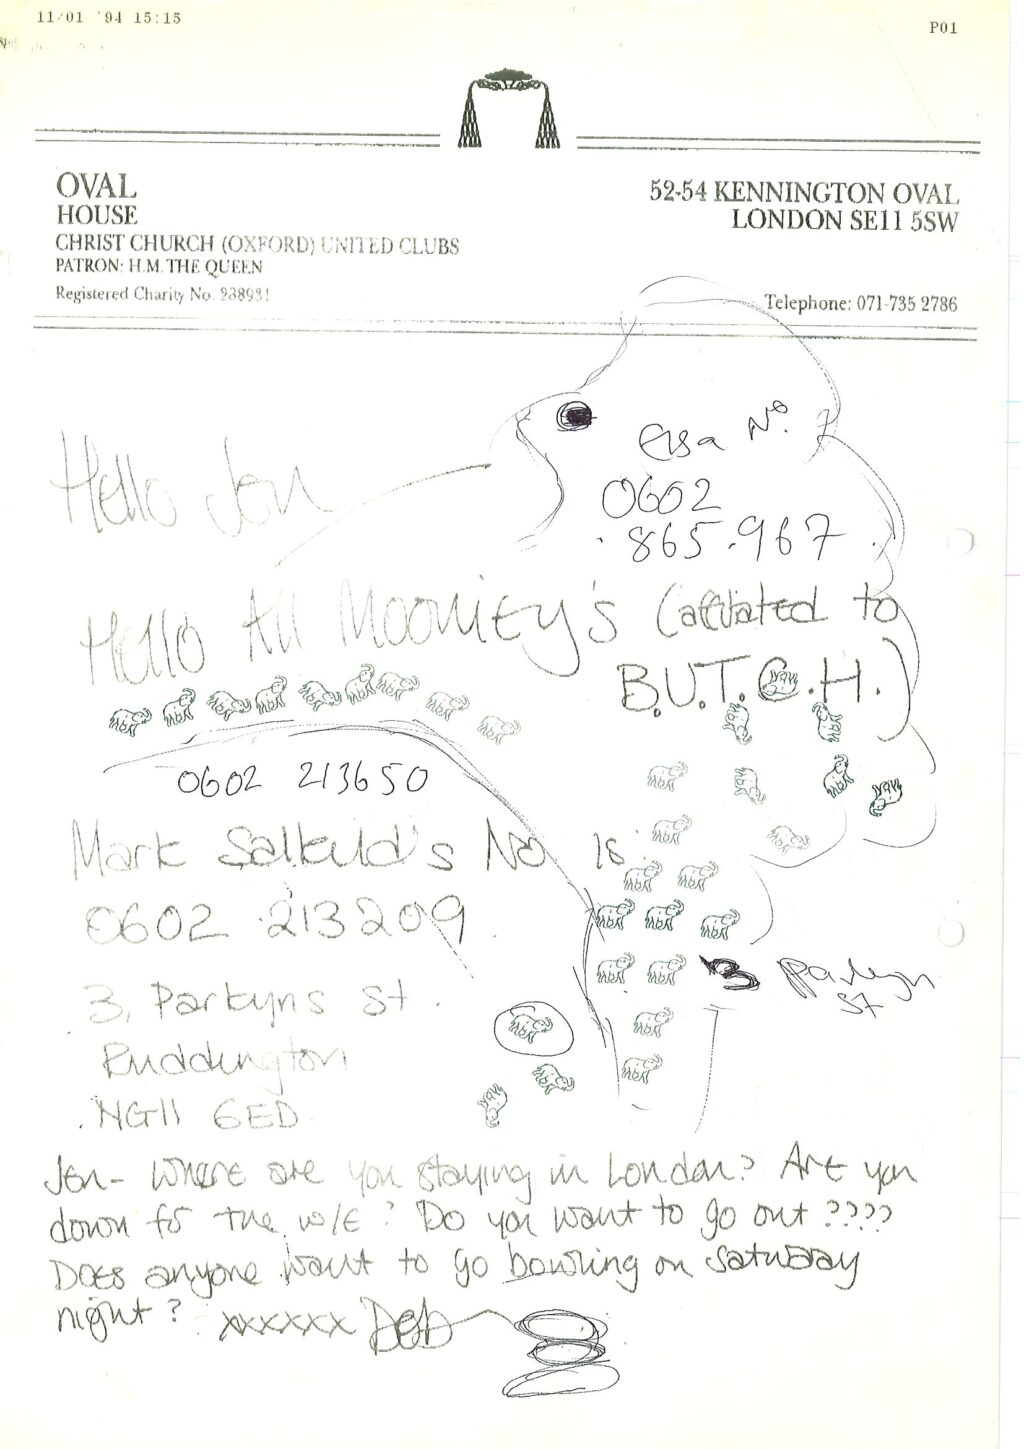 11/01 '94 15:15
P01
OVAL
HOUSE
CHRIST CHURCH (OXFORD) UNITED CLUBS
PATRON: H.M. THE QUEEN
Registered Charity No. 238931
52-54 KENNINGTON OVAL
LONDON SE11 5SW
Telephone: 071-735 2786
Elsa No.
0602
865.967
Hello Jen
Hello All Moonitey's (affiliated to
B.U.T.C.H.)
0602 213650
Mark Salkild's No Is
0602 213209
3, Parkyns St
Ruddington
NG11 6ED
3 Parkyn
St
Jen - Where are you staying in London? Are you
down for the w/e? Do you want to go out ????
Does anyone want to go bowling on Saturday
night? xxxxxx Deb